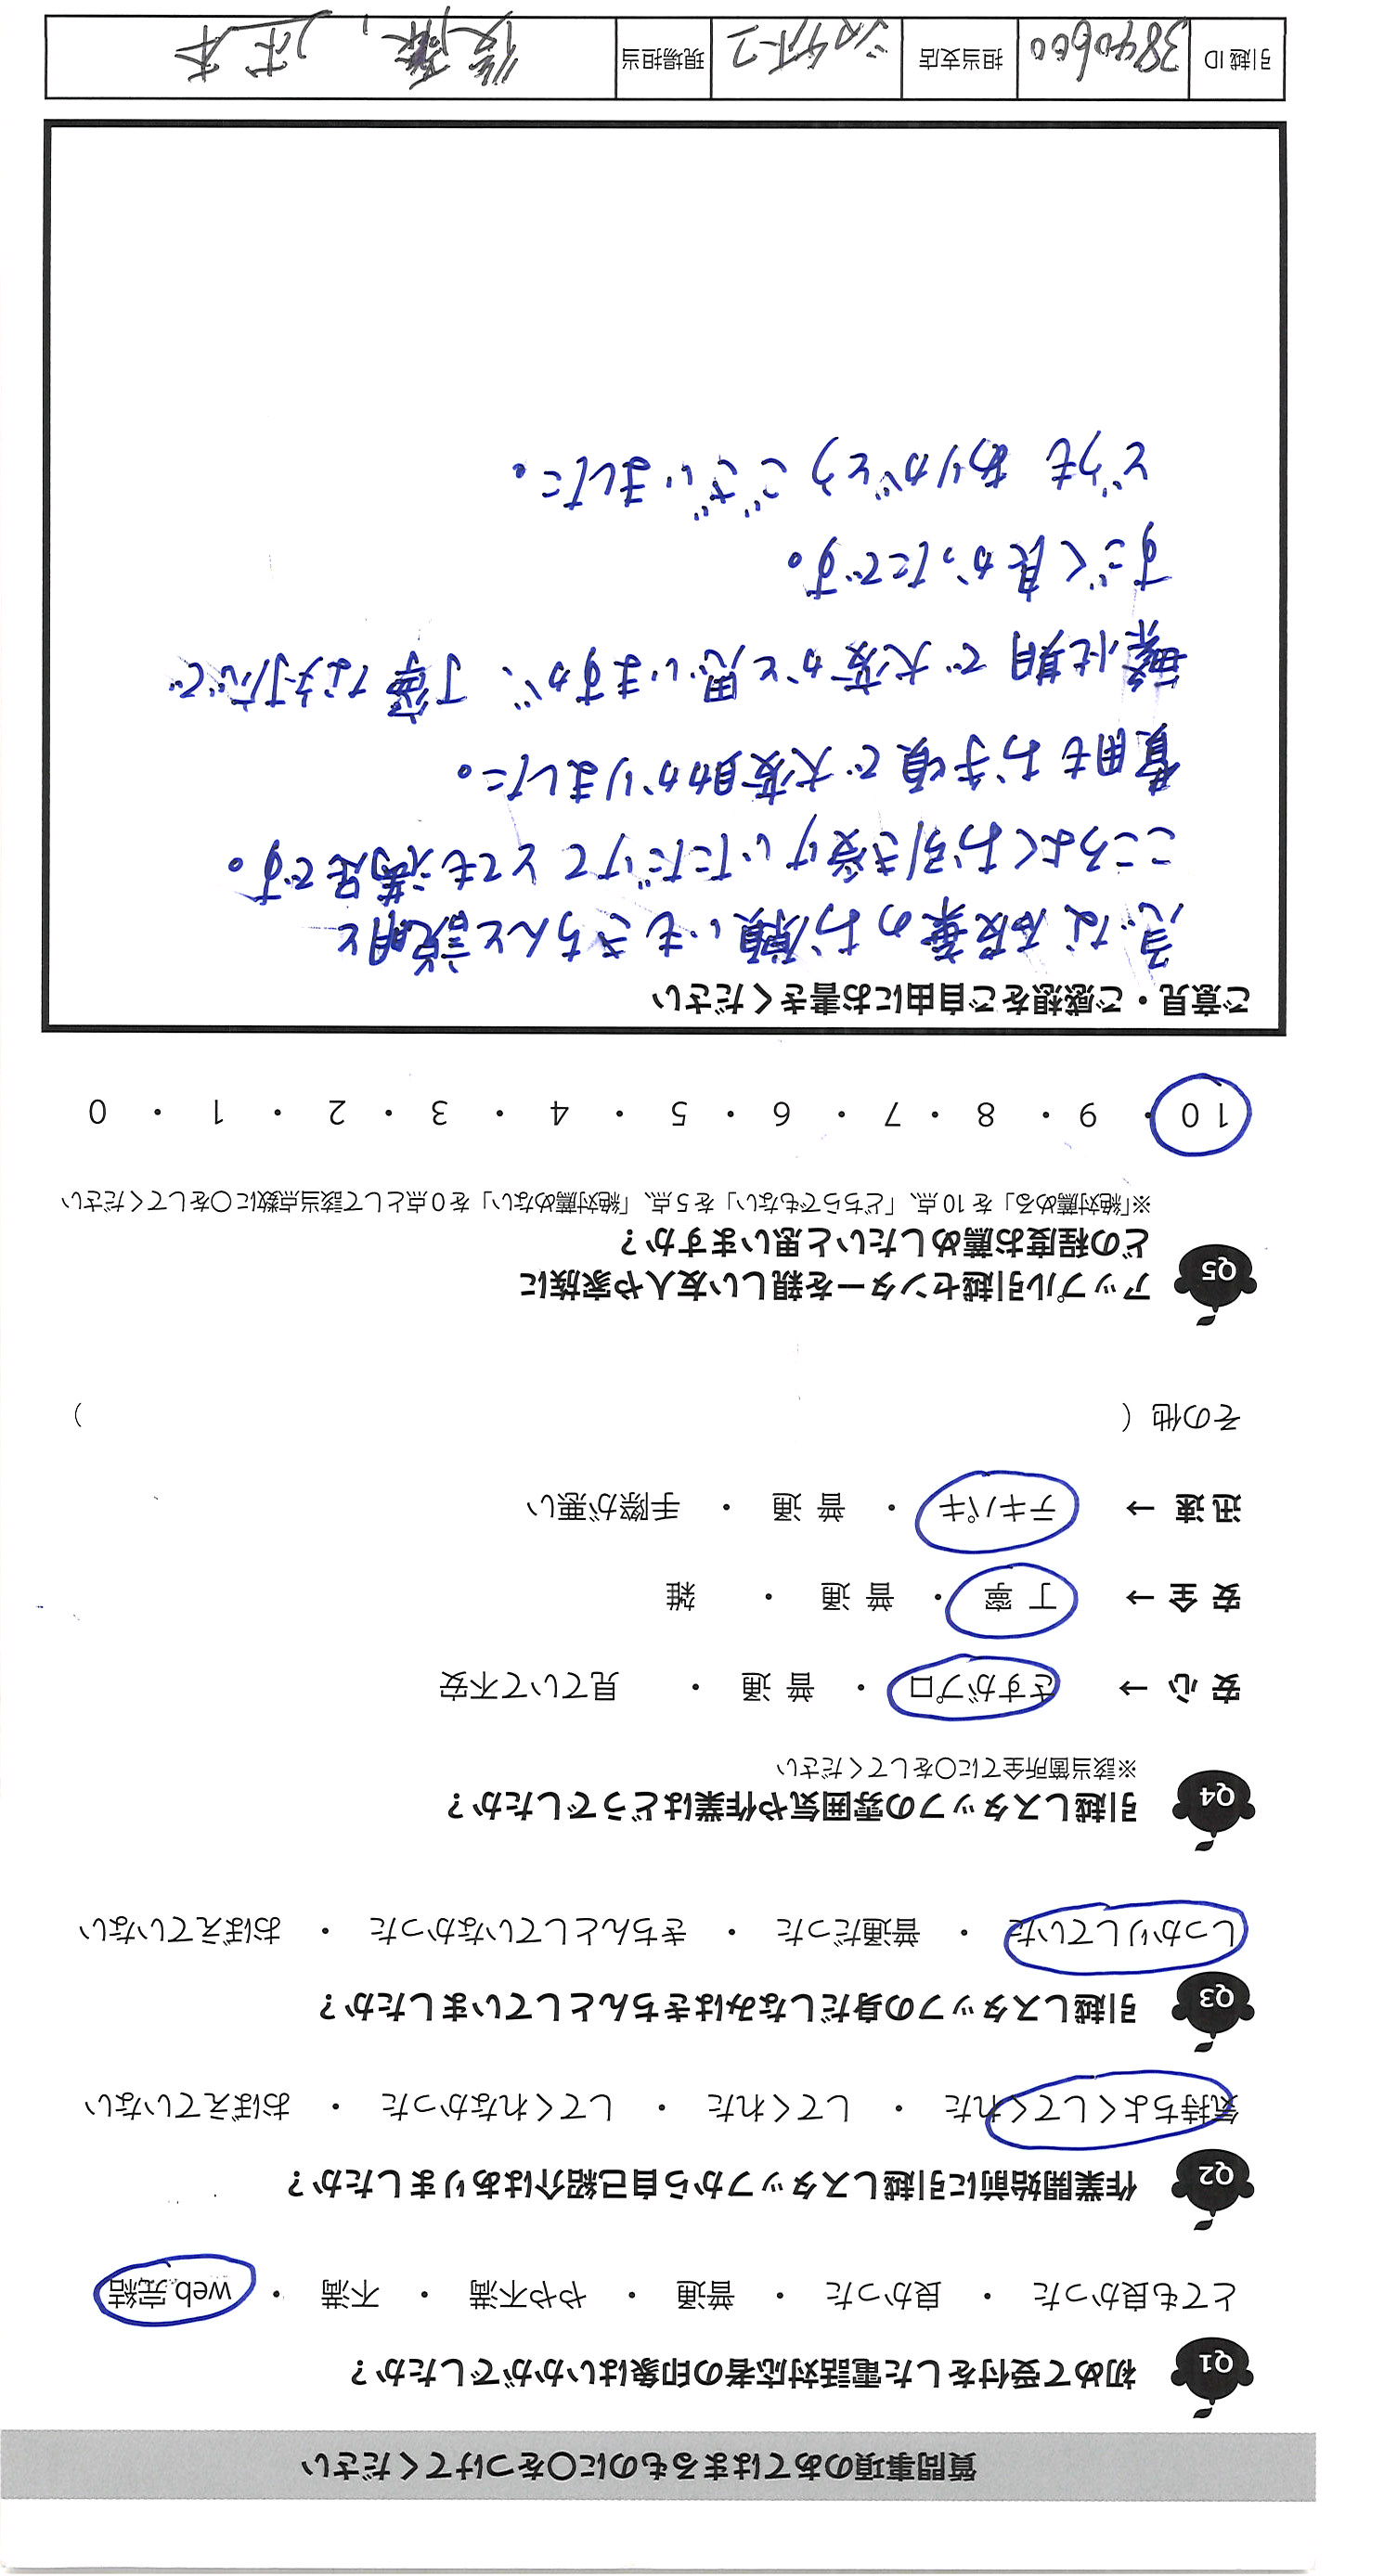 質問事項のあてはまるものに○をつけてください
Q1 初めて受付をした電話対応者の印象はいかがでしたか？
とても良かった ・ 良かった ・ 普通 ・ やや不満 ・ 不満 ・ web完結
Q2 作業開始前に引越しスタッフから自己紹介はありましたか？
気持ちよくしてくれた ・ してくれた ・ してくれなかった ・ おぼえていない
Q3 引越しスタッフの身だしなみはきちんとしていましたか？
しっかりしていた ・ 普通だった ・ きちんとしていなかった ・ おぼえていない
Q4 引越しスタッフの雰囲気や作業はどうでしたか？
※該当箇所全てに○をしてください
安心 → さすがプロ ・ 普通 ・ 見ていて不安
安全 → 丁寧 ・ 普通 ・ 雑
迅速 → テキパキ ・ 普通 ・ 手際が悪い
その他（ ）
Q5 アップル引越センターを親しい友人や家族に
どの程度お薦めしたいと思いますか？
※「絶対薦める」を10点、「どちらでもない」を5点、「絶対薦めない」を0点として該当点数に○をしてください
10 ・ 9 ・ 8 ・ 7 ・ 6 ・ 5 ・ 4 ・ 3 ・ 2 ・ 1 ・ 0
ご意見・ご感想をご自由にお書きください
急な残業のお願いもきちんと説明と
こころよくお引き受けいただけてとても満足です。
費用もお手頃で大変助かりました。
繁忙期で大変かと思いますが、丁寧な対応で
すごく良かったです。
どうもありがとうございました。
引越ID 3840600 担当支店 現場担当 後藤,